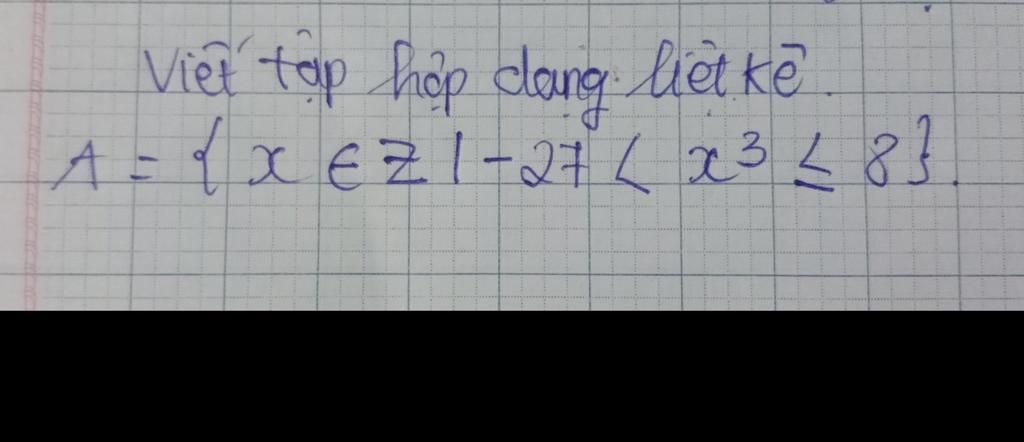 Viết tập hợp dạng liệt kê.
A = { x ∈ Z | -27 < x³ ≤ 8}.